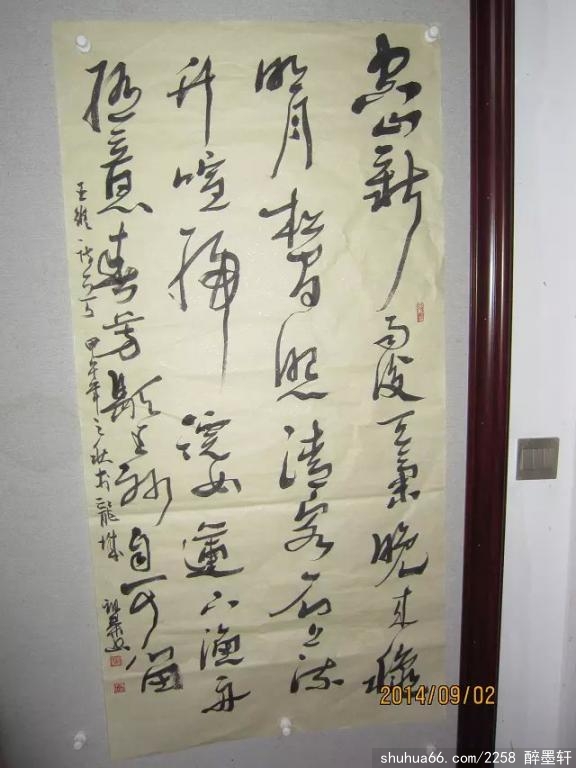 空山新雨後天氣晚来秋
明月松間照清泉石上流
竹喧歸浣女蓮下漁舟
随意春芳歇王孫自可留
王維詩 甲午年之秋於龍城
2014/09/02
shuhua66.com/2258 醉墨轩